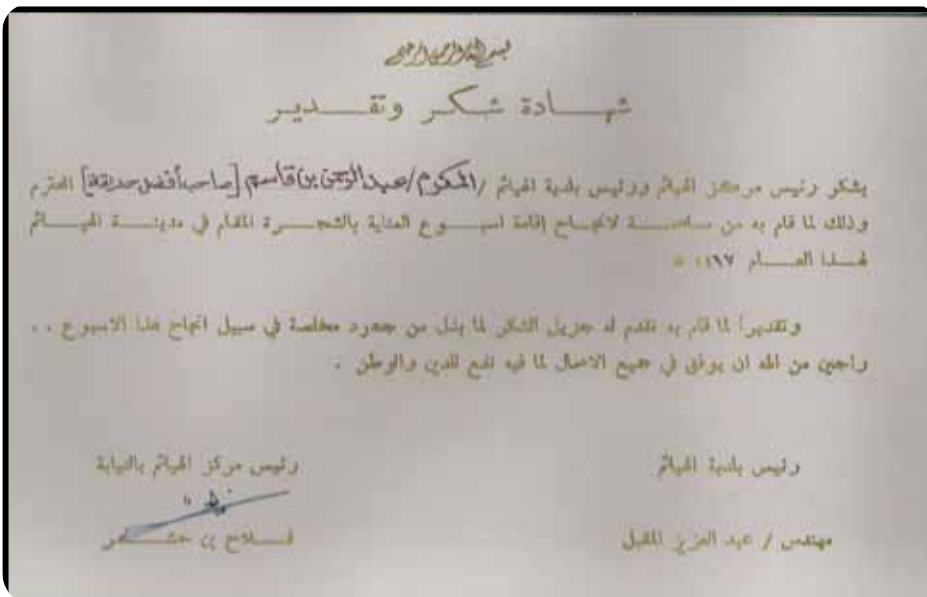 بسم الله الرحمن الرحيم
شهادة شكر وتقدير
يشكر رئيس مركز الهياثم ورئيس بلدية الهياثم / المكرم / عبدالرحمن بن قاسم [صاحب أفضل حديقة] المحترم
وذلك لما قام به من مساهمة لانجاح إقامة اسبوع العناية بالشجرة المقام في مدينة الهياثم
لهذا العام
وتقديراً لما قام به نقدم له جزيل الشكر لما بذل من جهود مخلصة في سبيل انجاح هذا الاسبوع . .
راجين من الله ان يوفق في جميع الاعمال لما فيه نفع للدين والوطن .
رئيس بلدية الهياثم
مهندس / عبد العزيز المقبل
رئيس مركز الهياثم بالنيابة
فلاح بن